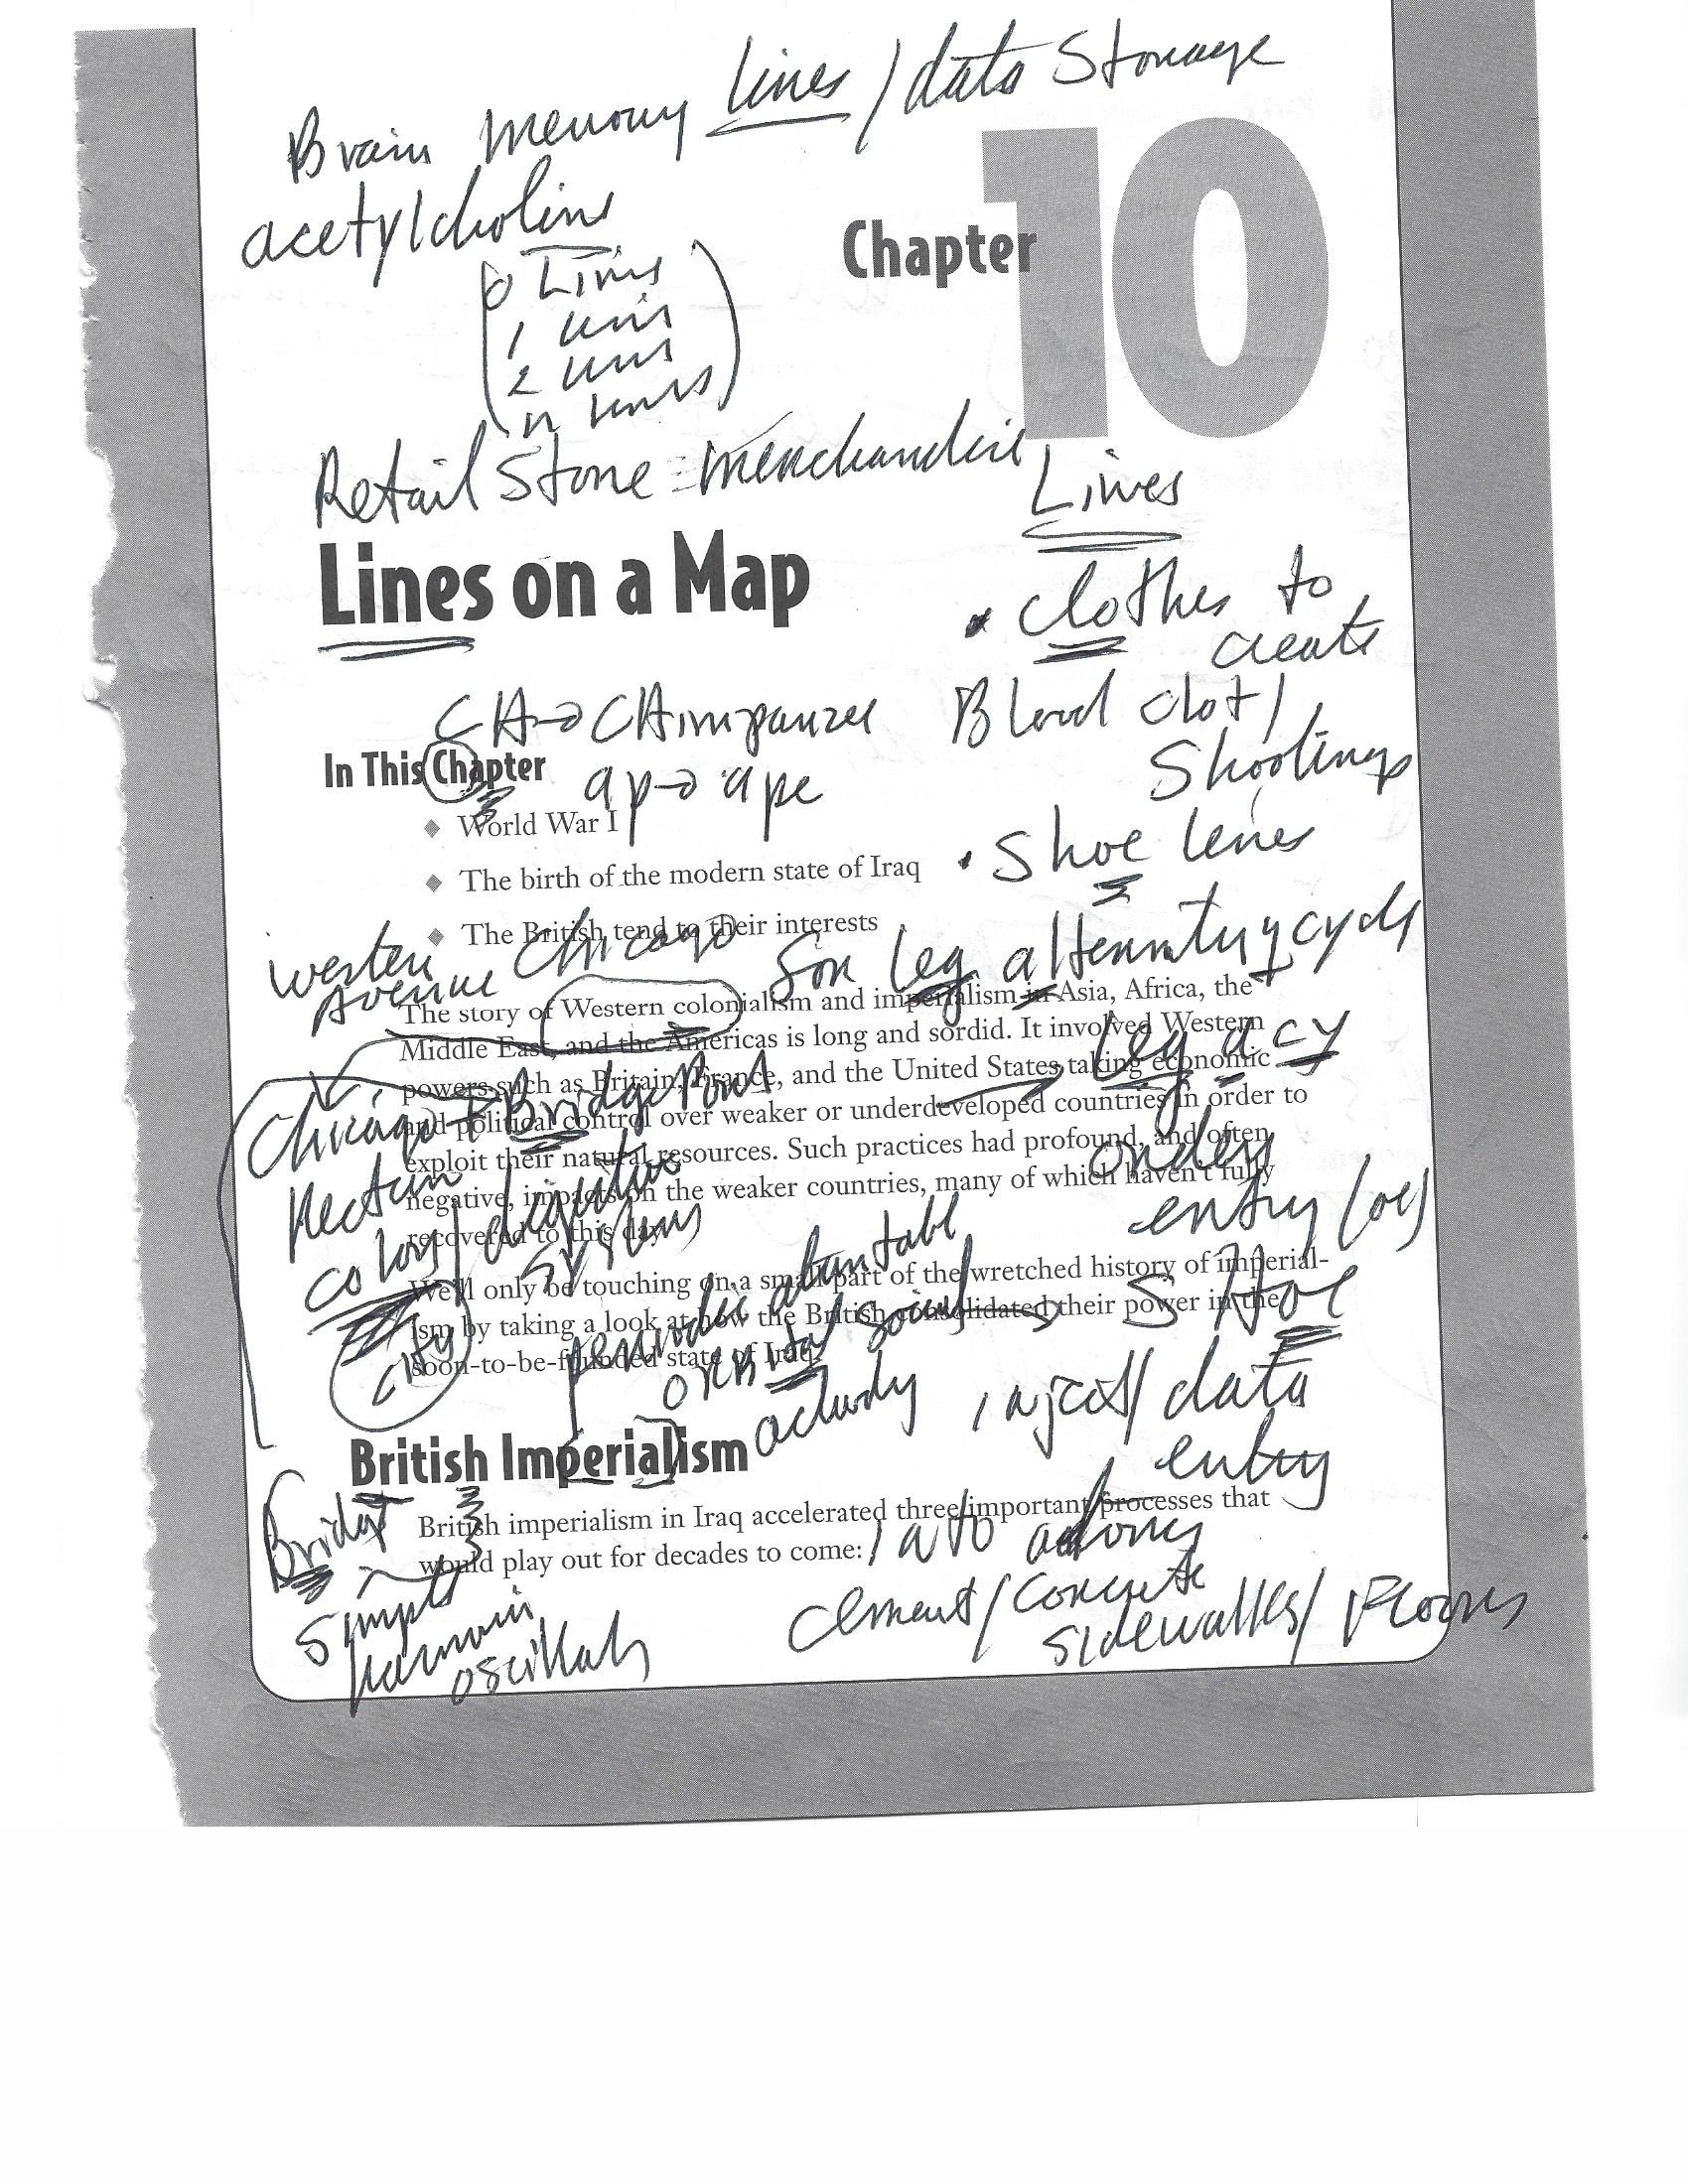 Brain memory lines / data Storage
acetylcholine
0 Lines
1 line
2 lines
n lines
Chapter 10
Retail Store = merchandise
Lines
Lines on a Map
• clothes to
create
CH→CHimpanzee
Blood clot /
Shootings
In This Chapter
ap→ape
World War I
• Shoe lines
The birth of the modern state of Iraq
The British tend to their interests
Western
Avenue Chicago
for leg alternating cycles
The story of Western colonialism and imperialism in Asia, Africa, the
Middle East, and the Americas is long and sordid. It involved Western
Leg a cy
powers such as Britain, France, and the United States taking economic
and political control over weaker or underdeveloped countries in order to
Chicago Bridgeport
exploit their natural resources. Such practices had profound, and often
orders
negative, impacts on the weaker countries, many of which haven't fully
recovered to this day.
Rectum
colon / digestive
systems
entry (oe)
We'll only be touching on a small part of the wretched history of imperial-
ism by taking a look at how the British consolidated their power in the
soon-to-be-founded state of Iraq.
city
periodic atom table
orbital social
S Hoe
activity
inject / data
entry
British Imperialism
Bridge
British imperialism in Iraq accelerated three important processes that
would play out for decades to come:
into
simple
harmonic
cement / concrete
sidewalks / Floors